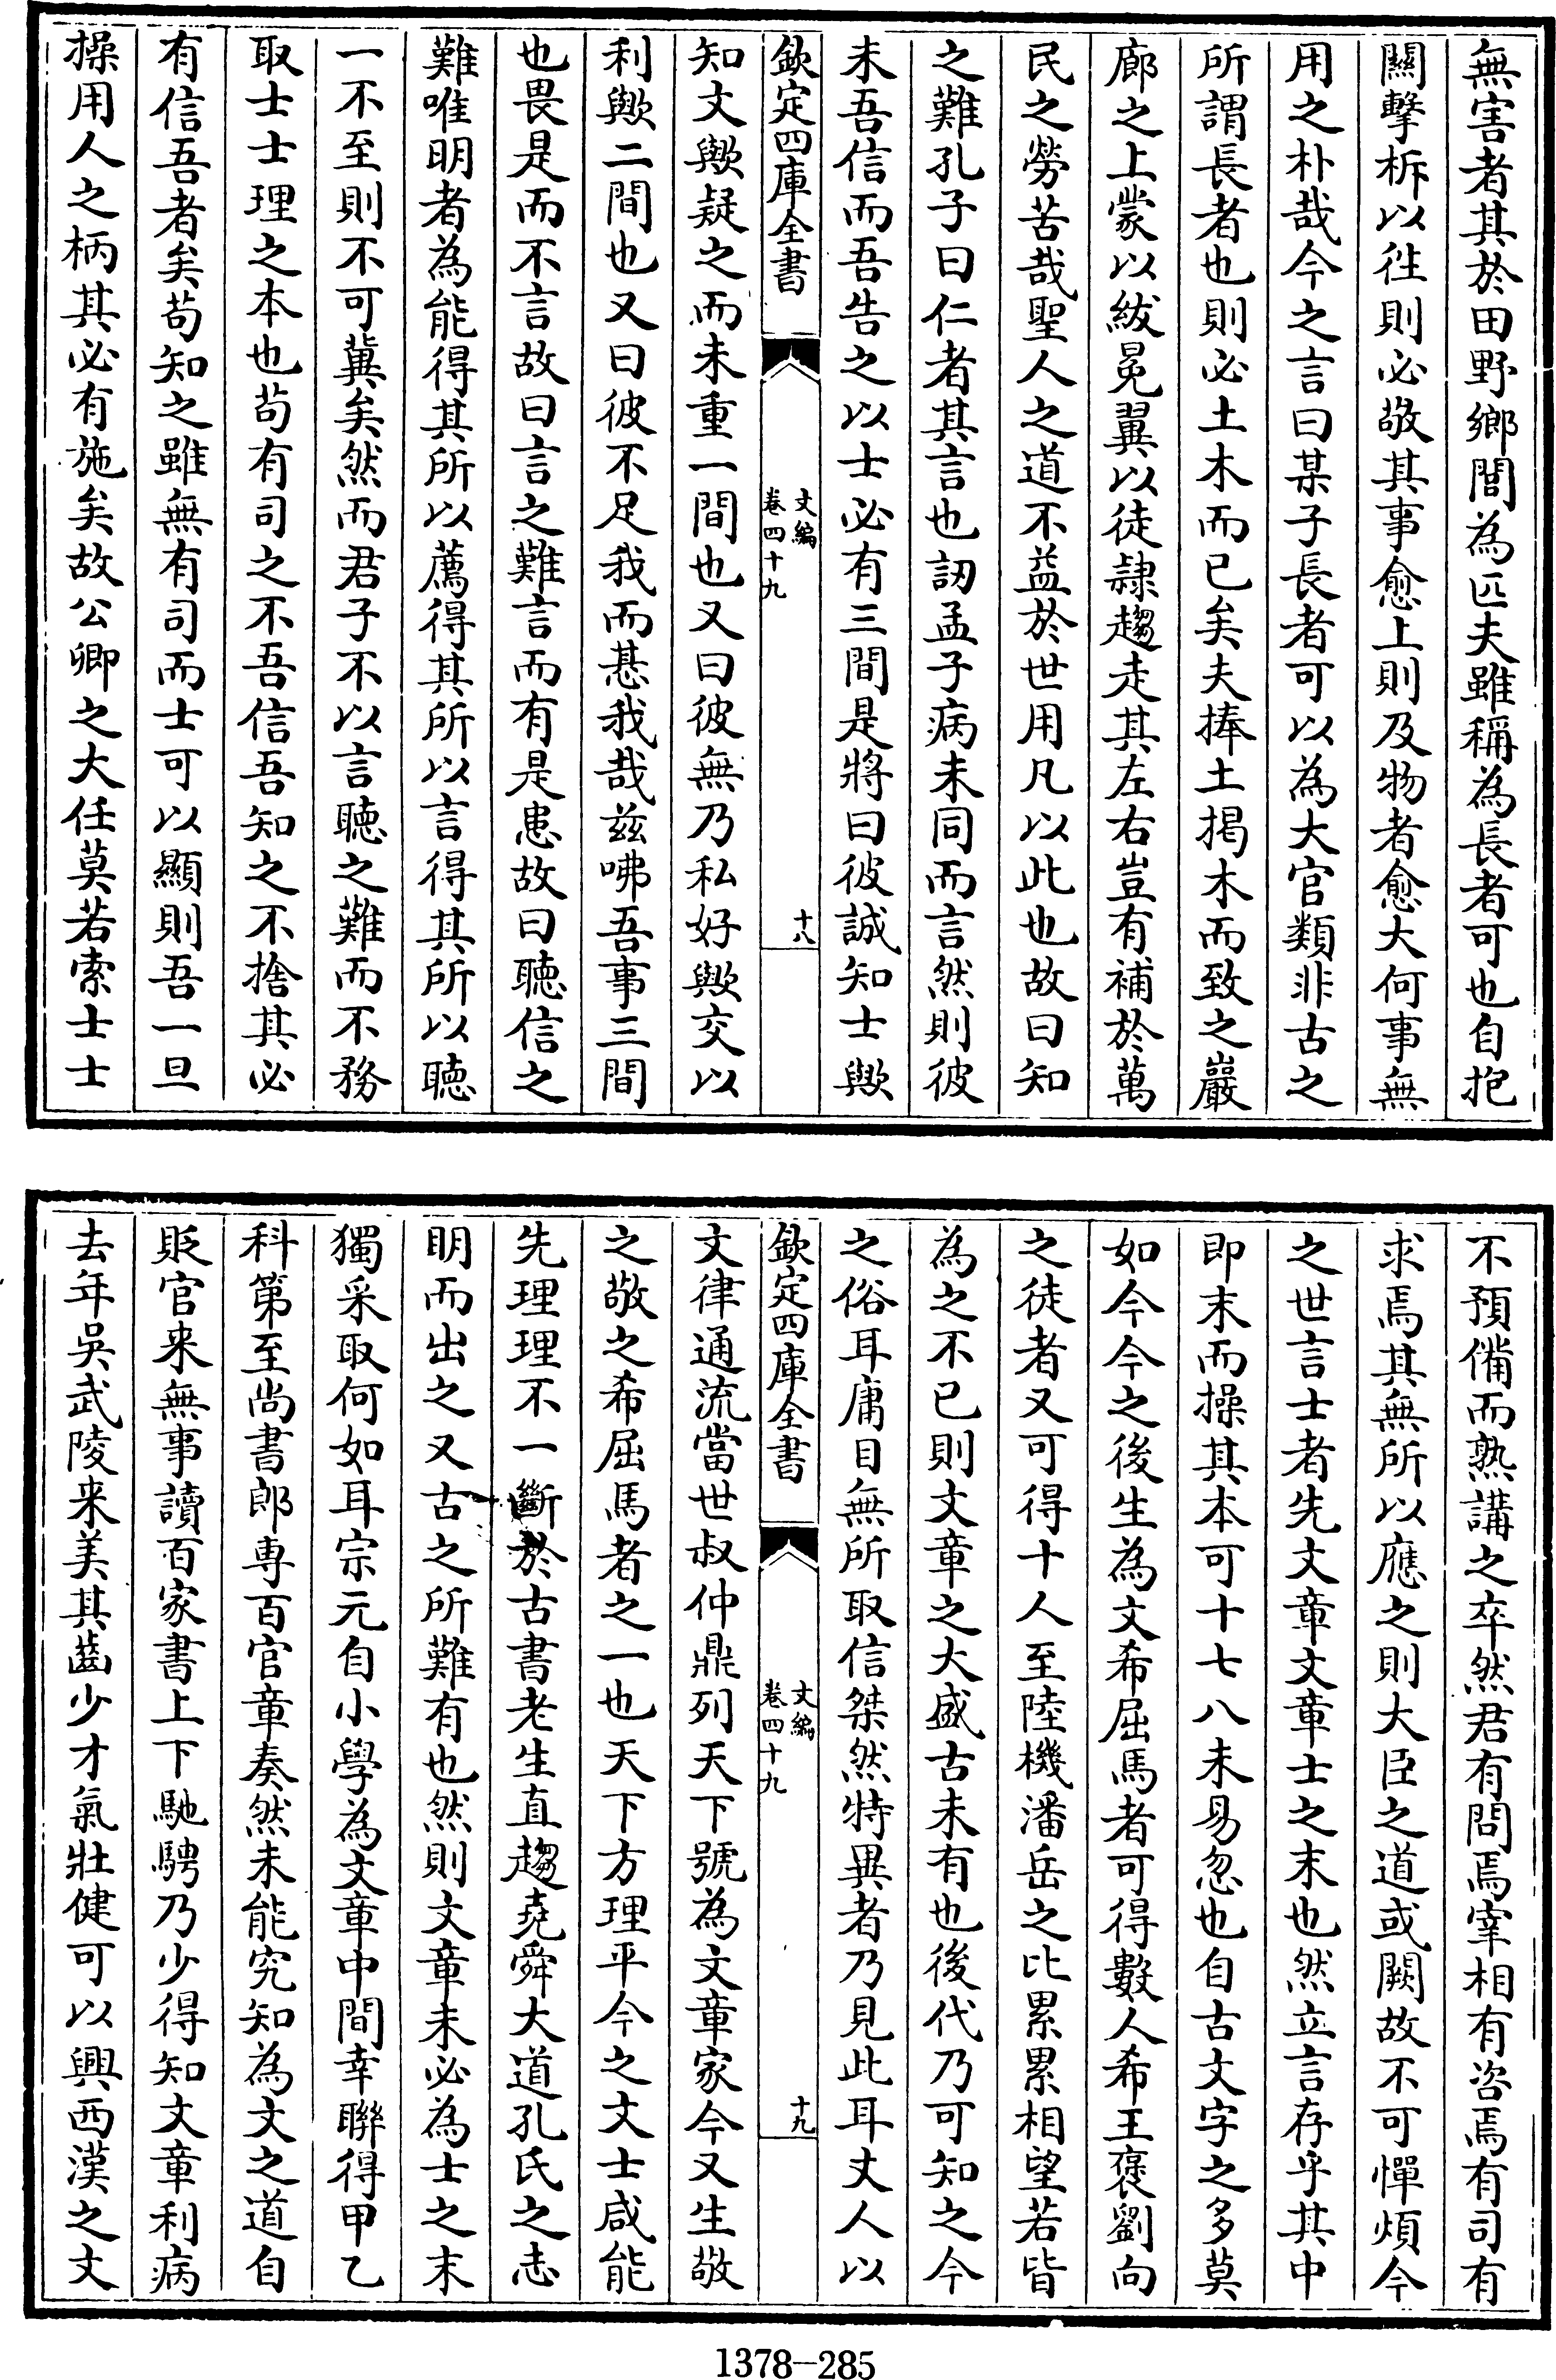 無害者其於田野鄉閭為匹夫雖稱為長者可也自抱
關擊柝以往則必敬其事愈上則及物者愈大何事無
用之朴哉今之言曰某子長者可以為大官類非古之
所謂長者也則必土木而已矣夫捧土揭木而致之巖
廊之上蒙以紱冕翼以徒隷趨走其左右豈有補於萬
民之勞苦哉聖人之道不益於世用凡以此也故曰知
之難孔子曰仁者其言也訒孟子病未同而言然則彼
未吾信而吾告之以士必有三間是將曰彼誠知士歟
欽定四庫全書
文編
卷四十九
十八
知文歟疑之而未重一間也又曰彼無乃私好歟交以
利歟二間也又曰彼不足我而惎我哉茲咈吾事三間
也畏是而不言故曰言之難言而有是患故曰聽信之
難唯明者為能得其所以薦得其所以言得其所以聽
一不至則不可冀矣然而君子不以言聽之難而不務
取士士理之本也苟有司之不吾信吾知之不捨其必
有信吾者矣苟知之雖無有司而士可以顯則吾一旦
操用人之柄其必有施矣故公卿之大任莫若索士士
不預備而熟講之卒然君有問焉宰相有咨焉有司有
求焉其無所以應之則大臣之道或闕故不可憚煩今
之世言士者先文章文章士之末也然立言存乎其中
即末而操其本可十七八未易忽也自古文字之多莫
如今今之後生為文希屈馬者可得數人希王褒劉向
之徒者又可得十人至陸機潘岳之比累累相望若皆
為之不已則文章之大盛古未有也後代乃可知之今
之俗耳庸目無所取信桀然特異者乃見此耳丈人以
欽定四庫全書
文編
卷四十九
十九
文律通流當世叔仲鼎列天下號為文章家今又生敬
之敬之希屈馬者之一也天下方理平今之文士咸能
先理理不一斷於古書老生直趨堯舜大道孔氏之志
明而出之又古之所難有也然則文章未必為士之末
獨采取何如耳宗元自小學為文章中間幸聯得甲乙
科第至尚書郎專百官章奏然未能究知為文之道自
貶官來無事讀百家書上下馳騁乃少得知文章利病
去年吳武陵來美其齒少才氣壯健可以興西漢之文
1378—285